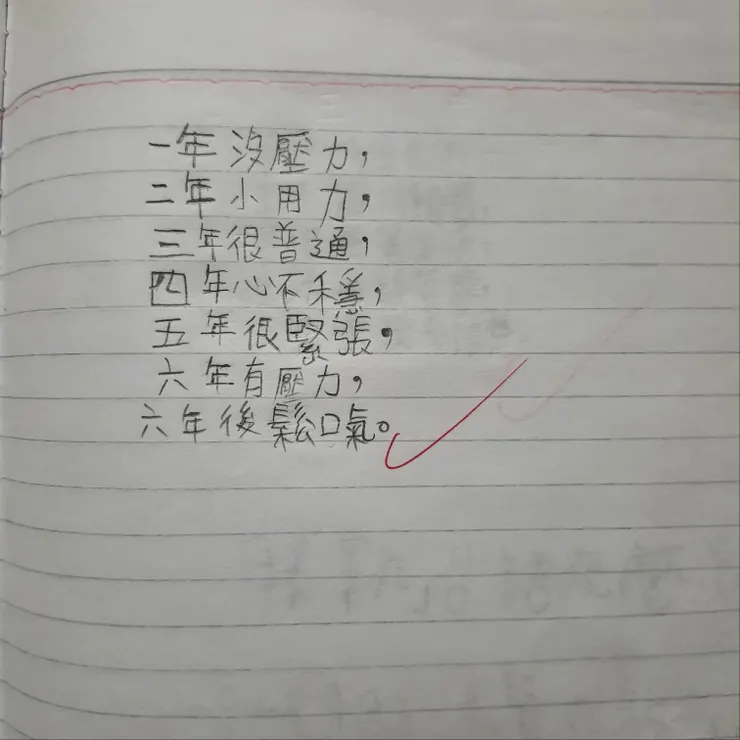 一年沒壓力，
二年小用力，
三年很普通，
四年心不穩，
五年很緊張，
六年有壓力，
六年後鬆口氣。